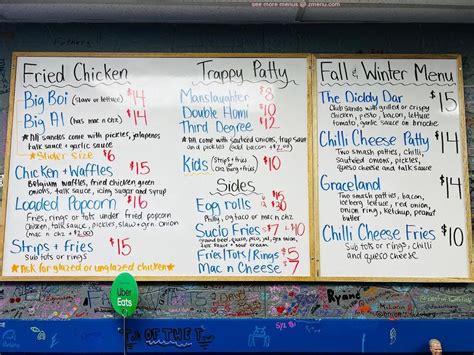 see more menus @ zmenu.com
Fried Chicken
Big Boi (slaw or lettuce) $14
Big Al (has mac n chz) $14
*All sandos come with pickles, jalapenos
talk sauce + garlic sauce
*Slider size $6
Chicken + Waffles $15
Belgium waffles, fried chicken, green
onions, talk sauce, icing sugar and syrup
Loaded Popcorn $16
Fries, rings or tots under fried popcorn
chicken, talk sauce, pickles, slaw + grn. onion
(mac n chz +2.00)
Strips + fries $15
*Ask for glazed or unglazed chicken*
Trappy Patty
Manslaughter $8
Double Homi $10
Third Degree $12
*All come with sauteed onions, trap sauce
and pickles (add bacon +2.00)
Kids (Strips + fries) $10
Sides
Egg rolls $30
Philly, og taco or mac n chz
Sucio Fries $7/$10
ground beef, queso, pico, jal, grn onion,
talk sauce + sour cream
Fries/Tots/Rings $5
Mac n Cheese $7
Fall & Winter Menu
The Diddy Dar $15
Club sando with grilled or crispy
chicken, pesto, bacon, lettuce
tomato, garlic sauce on brioche
Chilli Cheese Patty $14
Two smash patties, chilli,
sauteed onions, pickles,
queso cheese and talk sauce
Graceland $14
Two smash patties, bacon,
iceberg lettuce, red onion,
onion ring, ketchup, peanut
butter
Chilli Cheese Fries $10
Sub tots or rings, chilli
and queso cheese
Uber
Eats
Ryann